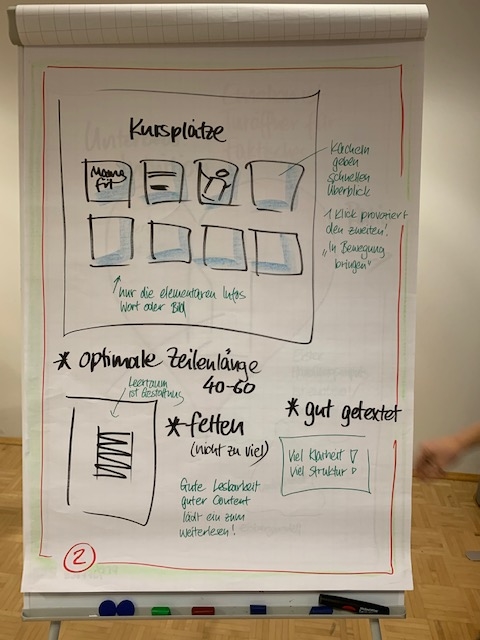 Kursplätze
Kacheln
geben
schnellen
Überblick
1 Klick provoziert
den zweiten!
"In Bewegung
bringen"
nur die elementaren Infos
Wort oder Bild
* optimale Zeilenlänge
40-60
Leerraum
ist Gestaltung
* fetten
(nicht zu viel)
* gut getextet
Viel Klarheit !
Viel Struktur !
Gute Lesbarkeit
guter Content
lädt ein zum
weiterlesen!
2